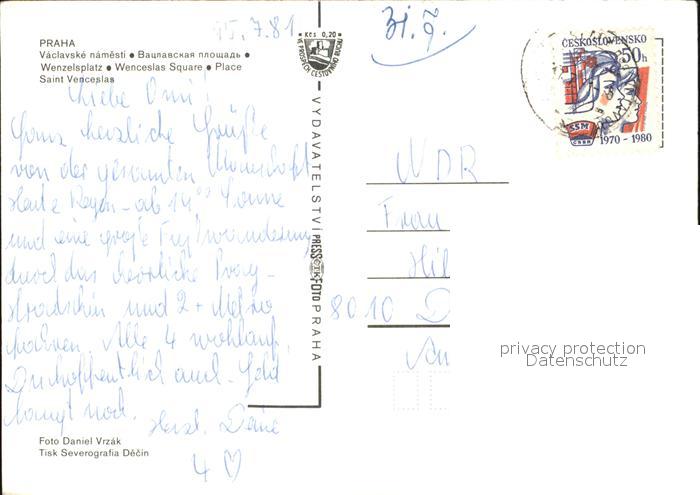 15.7.81
31. 8.
Kčs 0,20
PRAHA
Václavské náměstí ● Вацлавская площадь ●
Wenzelsplatz ● Wenceslas Square ● Place
Saint Venceslas
ČESKOSLOVENSKO
50h
SSM
1970 - 1980
Liebe Omi!
Ganz herzliche Grüße
von der gesamten Mannschaft
Heute Regen - ab 14°° Sonne
und eine große Fußwanderung
durch das herrliche Prag -
Hradschin und 2 x Metro
fahren. Alle 4 wohlauf,
Du hoffentlich auch. Geld
langt noch. Herzl. Deine
4 ♡
VYDAVATELSTVÍ PRESSFOTO PRAHA
DDR
Frau
Hil
8010 D
privacy protection
Datenschutz
Foto Daniel Vrzák
Tisk Severografia Děčín